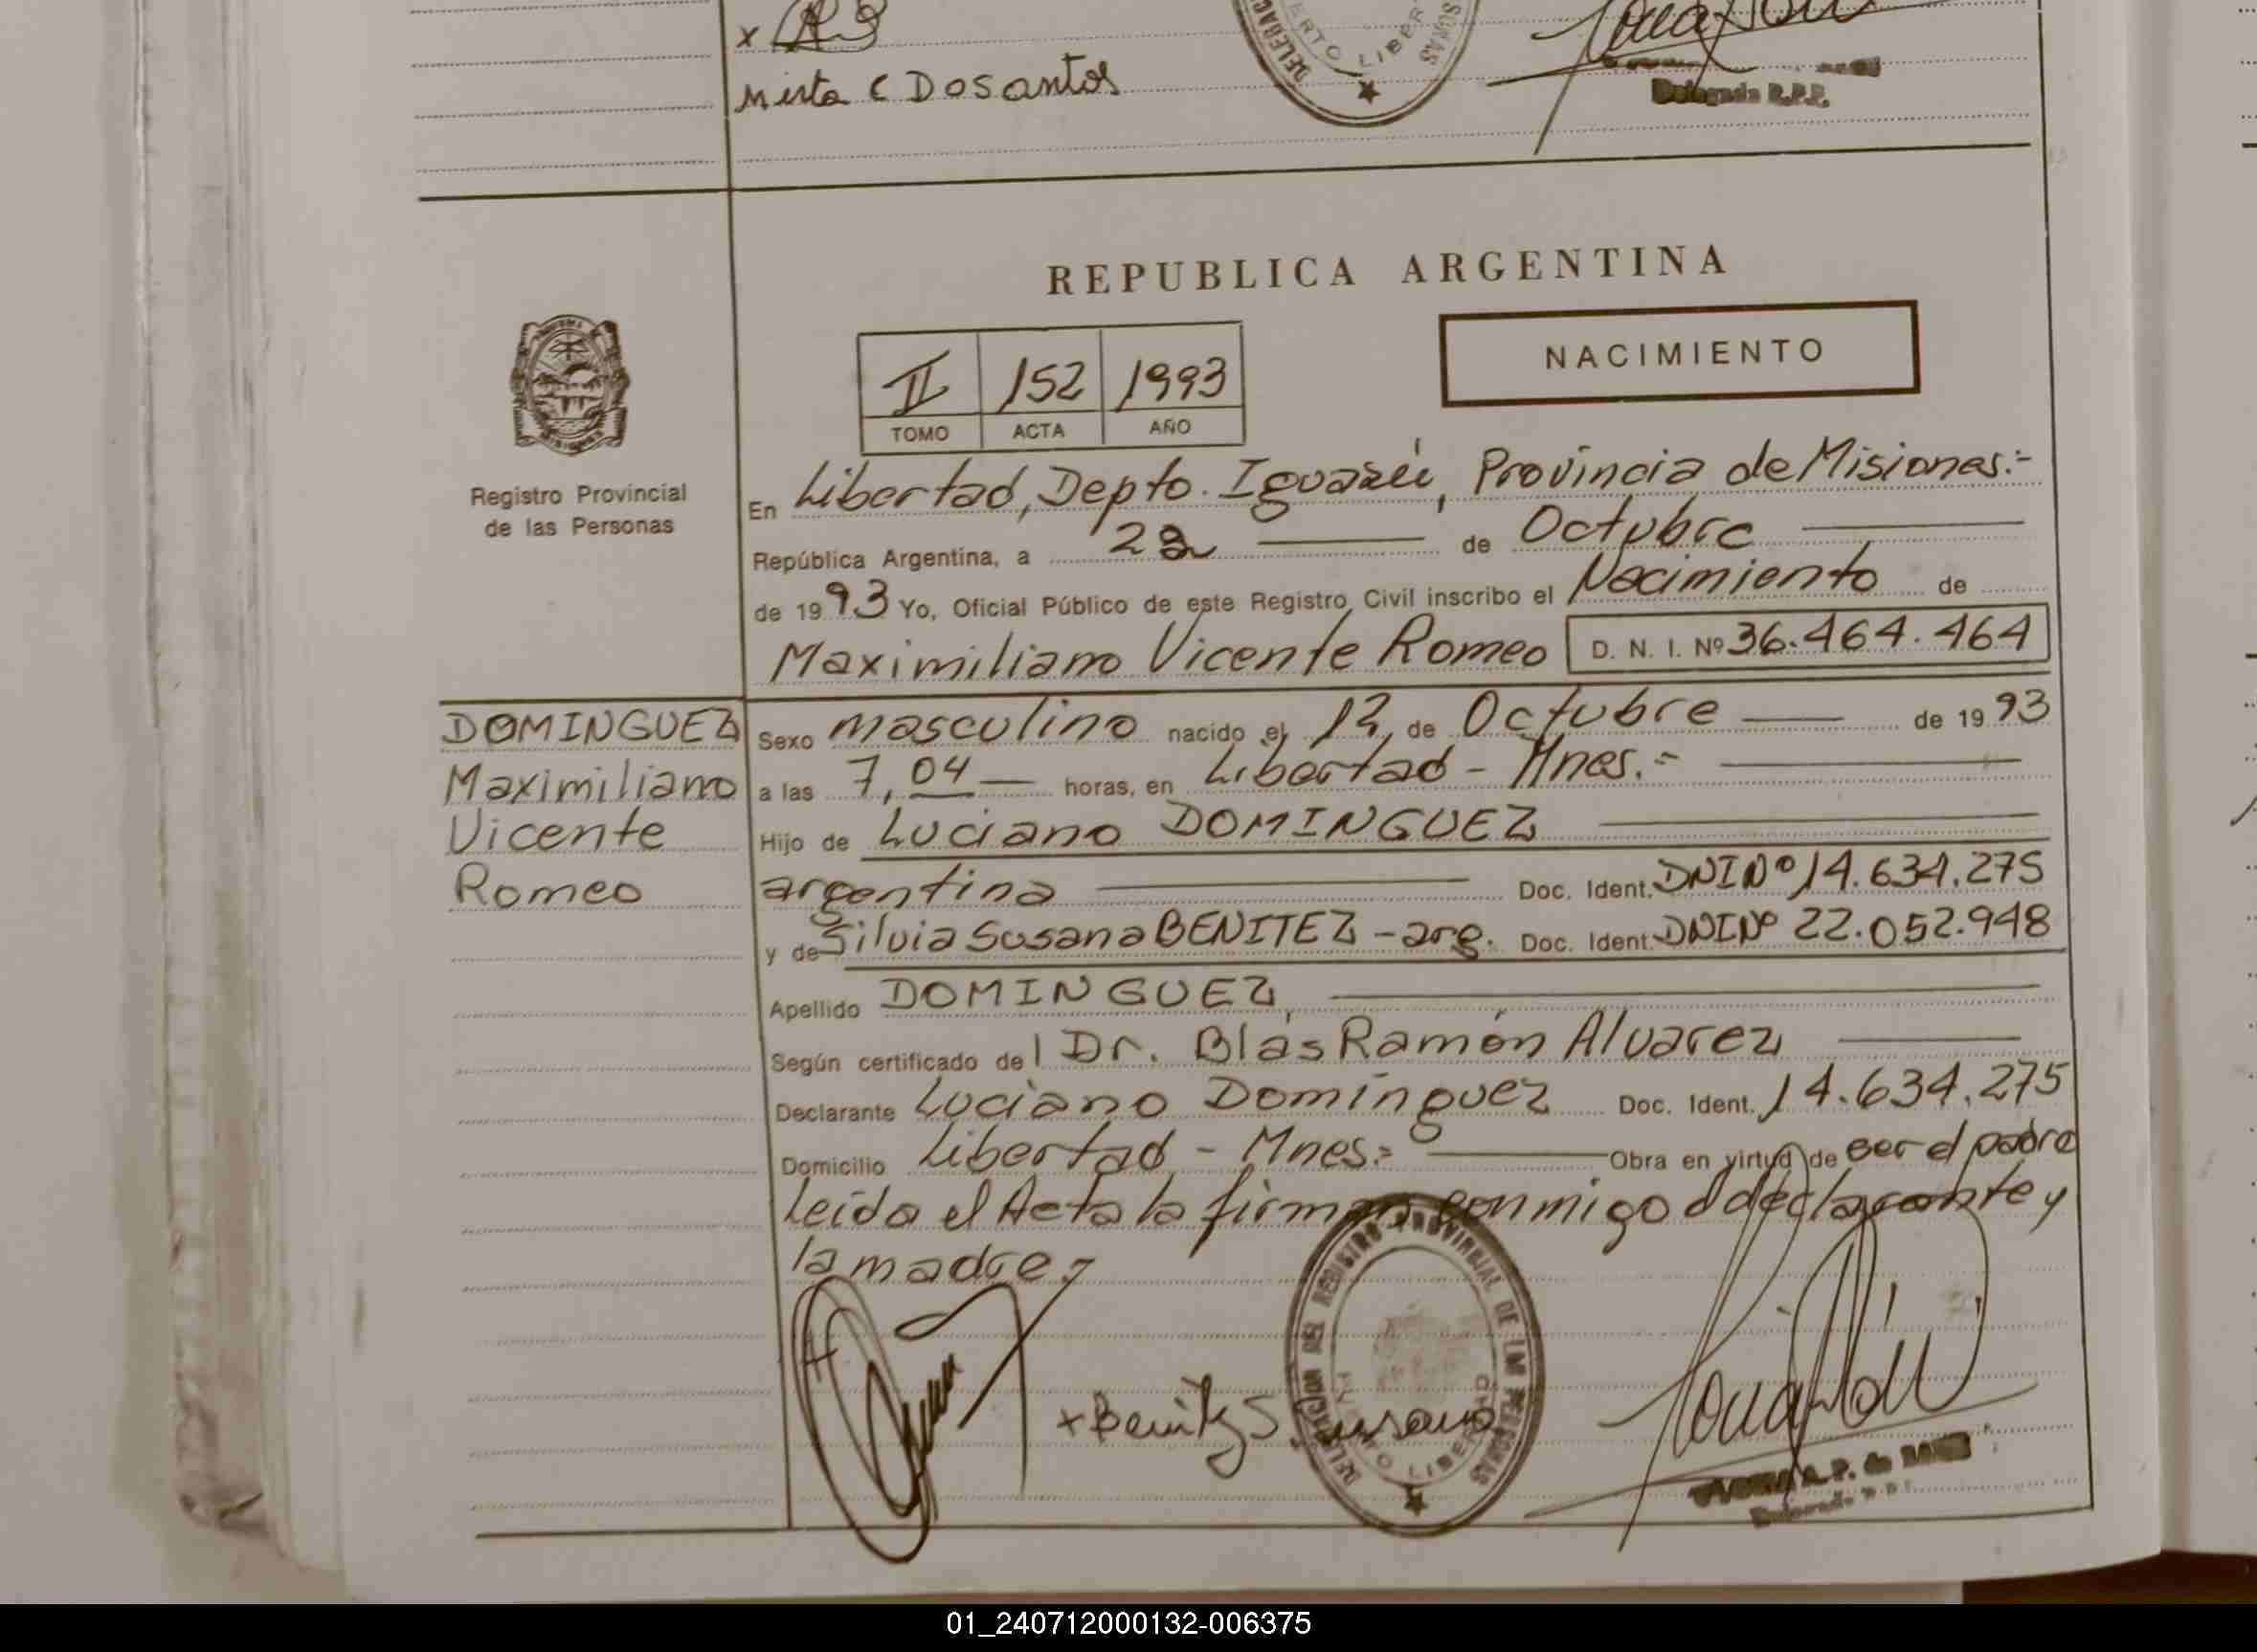 x
Mirta C Dosantos
Delegada R.P.P.
REPUBLICA ARGENTINA
NACIMIENTO
II 152 1993
TOMO ACTA AÑO
Registro Provincial
de las Personas
En Libertad, Depto. Iguazú, Provincia de Misiones.-
República Argentina, a 22 de Octubre
de 1993 Yo, Oficial Público de este Registro Civil inscribo el Nacimiento de
Maximiliano Vicente Romeo D. N. I. Nº 36.464.464
DOMINGUEZ
Maximiliano
Vicente
Romeo
Sexo masculino nacido el 12 de Octubre de 1993
a las 7,04 horas, en Libertad - Mnes.=
Hijo de Luciano DOMINGUEZ
argentina Doc. Ident. DNI Nº 14.634.275
y de Silvia Susana BENITEZ - arg. Doc. Ident. DNI Nº 22.052.948
Apellido DOMINGUEZ
Según certificado del Dr. Blás Ramón Alvarez
Declarante Luciano Domínguez Doc. Ident. 14.634.275
Domicilio Libertad - Mnes.= Obra en virtud de ser el padre
Leída el Acta la firman conmigo el declarante y
la madre.-
x Benitez Susana
DELEGACION DEL REGISTRO PROVINCIAL DE LAS PERSONAS
PUERTO LIBERTAD
01_240712000132-006375